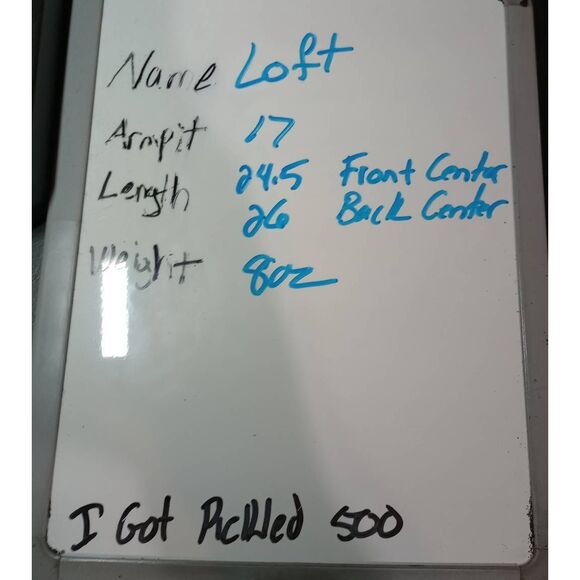 Name Loft
Armpit 17
Length 24.5 Front Center
26 Back Center
Weight 8oz
I Got Pickled 500